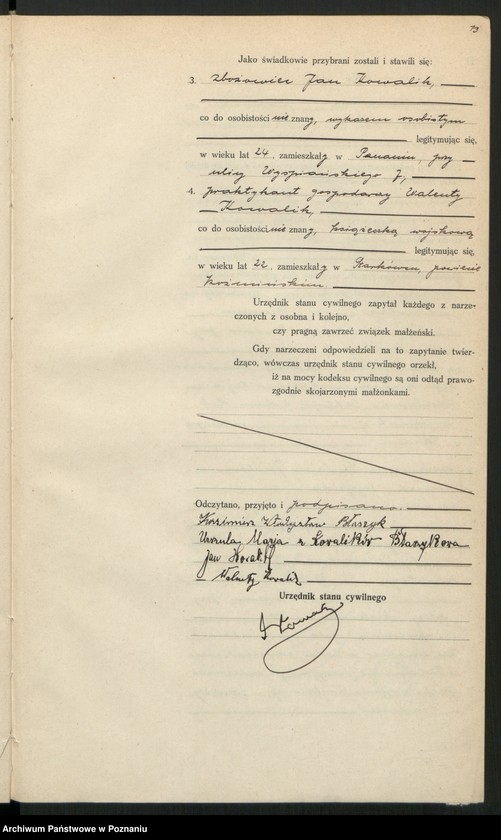 Jako świadkowie przybrani zostali i stawili się:
3. zbożowiec Jan Kowalik,
co do osobistości nie znany, wykazem osobistym
legitymując się,
w wieku lat 24, zamieszkały w Poznaniu, przy
ulicy Wyspiańskiego 7,
4. praktykant gospodarczy Walenty
Kowalik,
co do osobistości nie znany, książeczką wojskową
legitymując się,
w wieku lat 22, zamieszkały w powiecie
koźmińskim
Urzędnik stanu cywilnego zapytał każdego z narze-
czonych z osobna i kolejno,
czy pragną zawrzeć związek małżeński.
Gdy narzeczeni odpowiedzieli na to zapytanie twier-
dząco, wówczas urzędnik stanu cywilnego orzekł,
iż na mocy kodeksu cywilnego są oni odtąd prawo-
zgodnie skojarzonymi małżonkami.
Odczytano, przyjęto i podpisano.
Kazimierz Władysław Błaszyk
Urszula Marja z Kowalików Błaszykowa
Jan Kowalik
Walenty Kowalik
Urzędnik stanu cywilnego
Archiwum Państwowe w Poznaniu